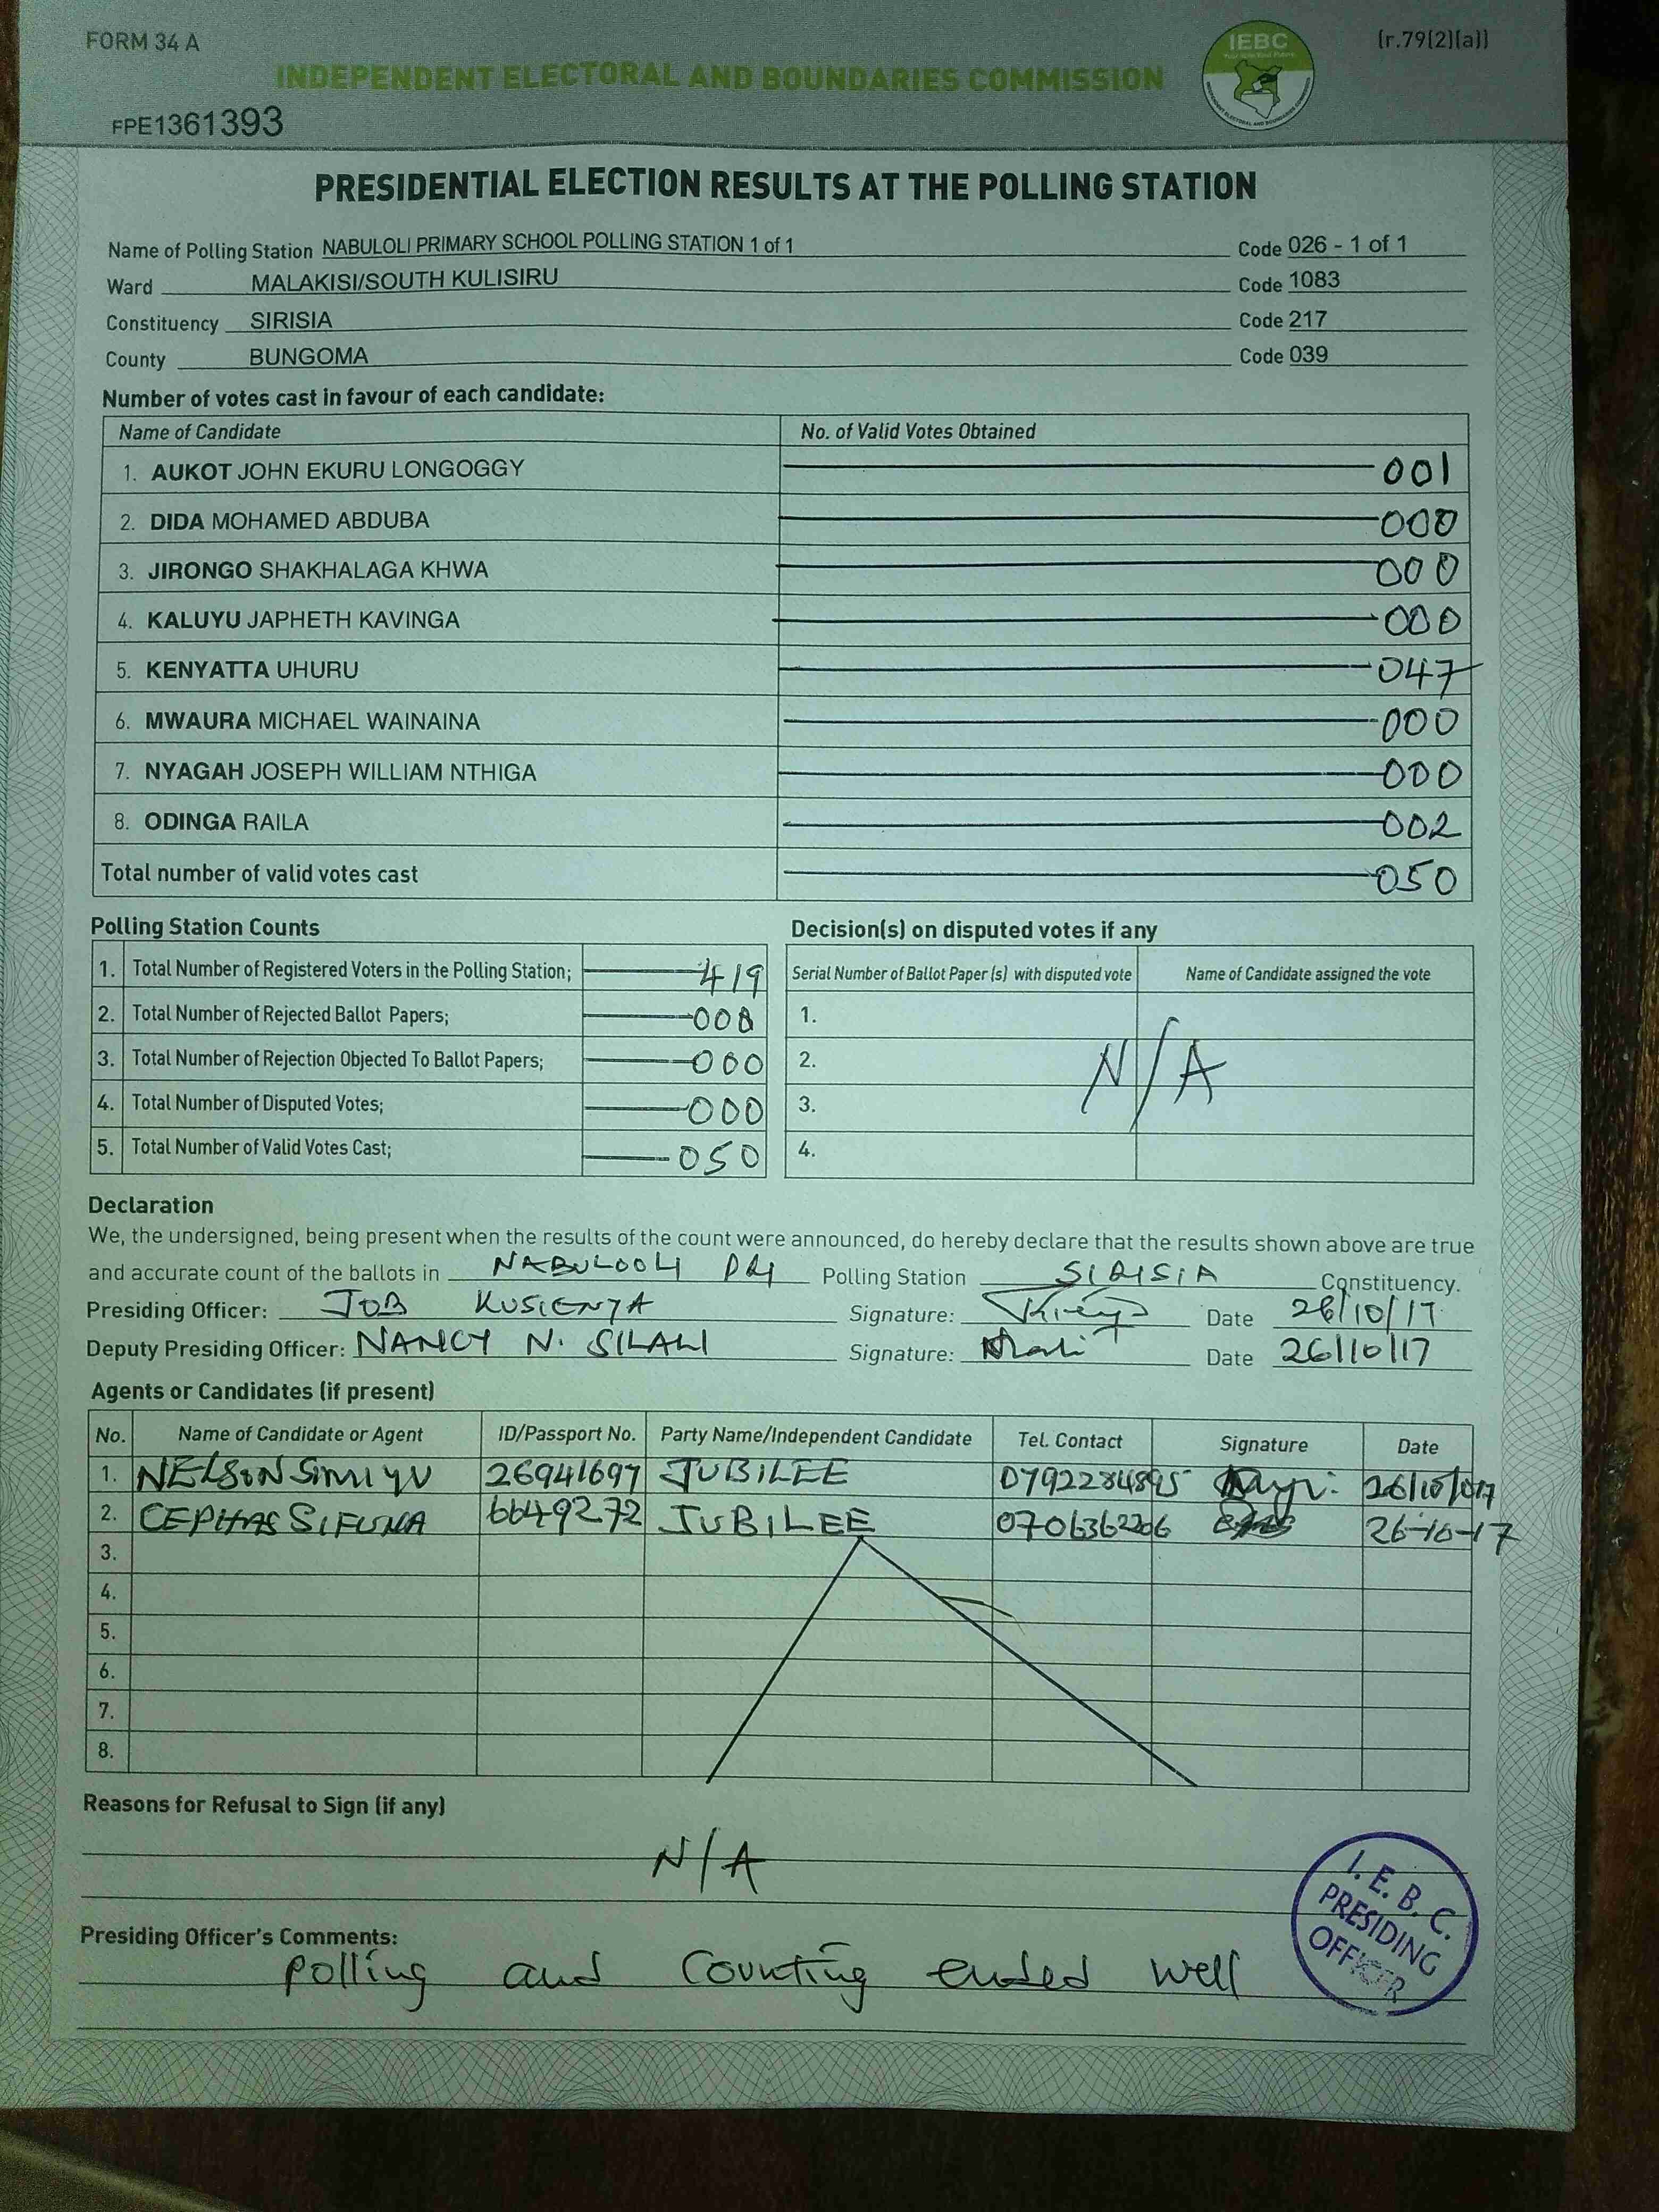 FORM 34 A
(r.79(2)(a))
IEBC
INDEPENDENT ELECTORAL AND BOUNDARIES COMMISSION
FPE1361393
PRESIDENTIAL ELECTION RESULTS AT THE POLLING STATION
Name of Polling Station NABULOLI PRIMARY SCHOOL POLLING STATION 1 of 1 Code 026 - 1 of 1
Ward MALAKISI/SOUTH KULISIRU Code 1083
Constituency SIRISIA Code 217
County BUNGOMA Code 039
Number of votes cast in favour of each candidate:
Name of Candidate No. of Valid Votes Obtained
1. AUKOT JOHN EKURU LONGOGGY 001
2. DIDA MOHAMED ABDUBA 000
3. JIRONGO SHAKHALAGA KHWA 000
4. KALUYU JAPHETH KAVINGA 000
5. KENYATTA UHURU 047
6. MWAURA MICHAEL WAINAINA 000
7. NYAGAH JOSEPH WILLIAM NTHIGA 000
8. ODINGA RAILA 002
Total number of valid votes cast 050
Polling Station Counts
1. Total Number of Registered Voters in the Polling Station; 419
2. Total Number of Rejected Ballot Papers; 008
3. Total Number of Rejection Objected To Ballot Papers; 000
4. Total Number of Disputed Votes; 000
5. Total Number of Valid Votes Cast; 050
Decision(s) on disputed votes if any
Serial Number of Ballot Paper (s) with disputed vote Name of Candidate assigned the vote
1.
2. N/A
3.
4.
Declaration
We, the undersigned, being present when the results of the count were announced, do hereby declare that the results shown above are true
and accurate count of the ballots in NABULOOLI PRI Polling Station SIRISIA Constituency.
Presiding Officer: JOB KUSIENYA Signature: Date 26/10/17
Deputy Presiding Officer: NANCY N. SILALI Signature: Date 26/10/17
Agents or Candidates (if present)
No. Name of Candidate or Agent ID/Passport No. Party Name/Independent Candidate Tel. Contact Signature Date
1. NELSON SIMIYU 26941697 JUBILEE 0792284895 26/10/017
2. CEPHAS SIFUNA 6649272 JUBILEE 0706362206 26-10-17
3.
4.
5.
6.
7.
8.
Reasons for Refusal to Sign (if any)
N/A
Presiding Officer's Comments:
Polling and Counting ended well
I. E. B. C.
PRESIDING
OFFICER